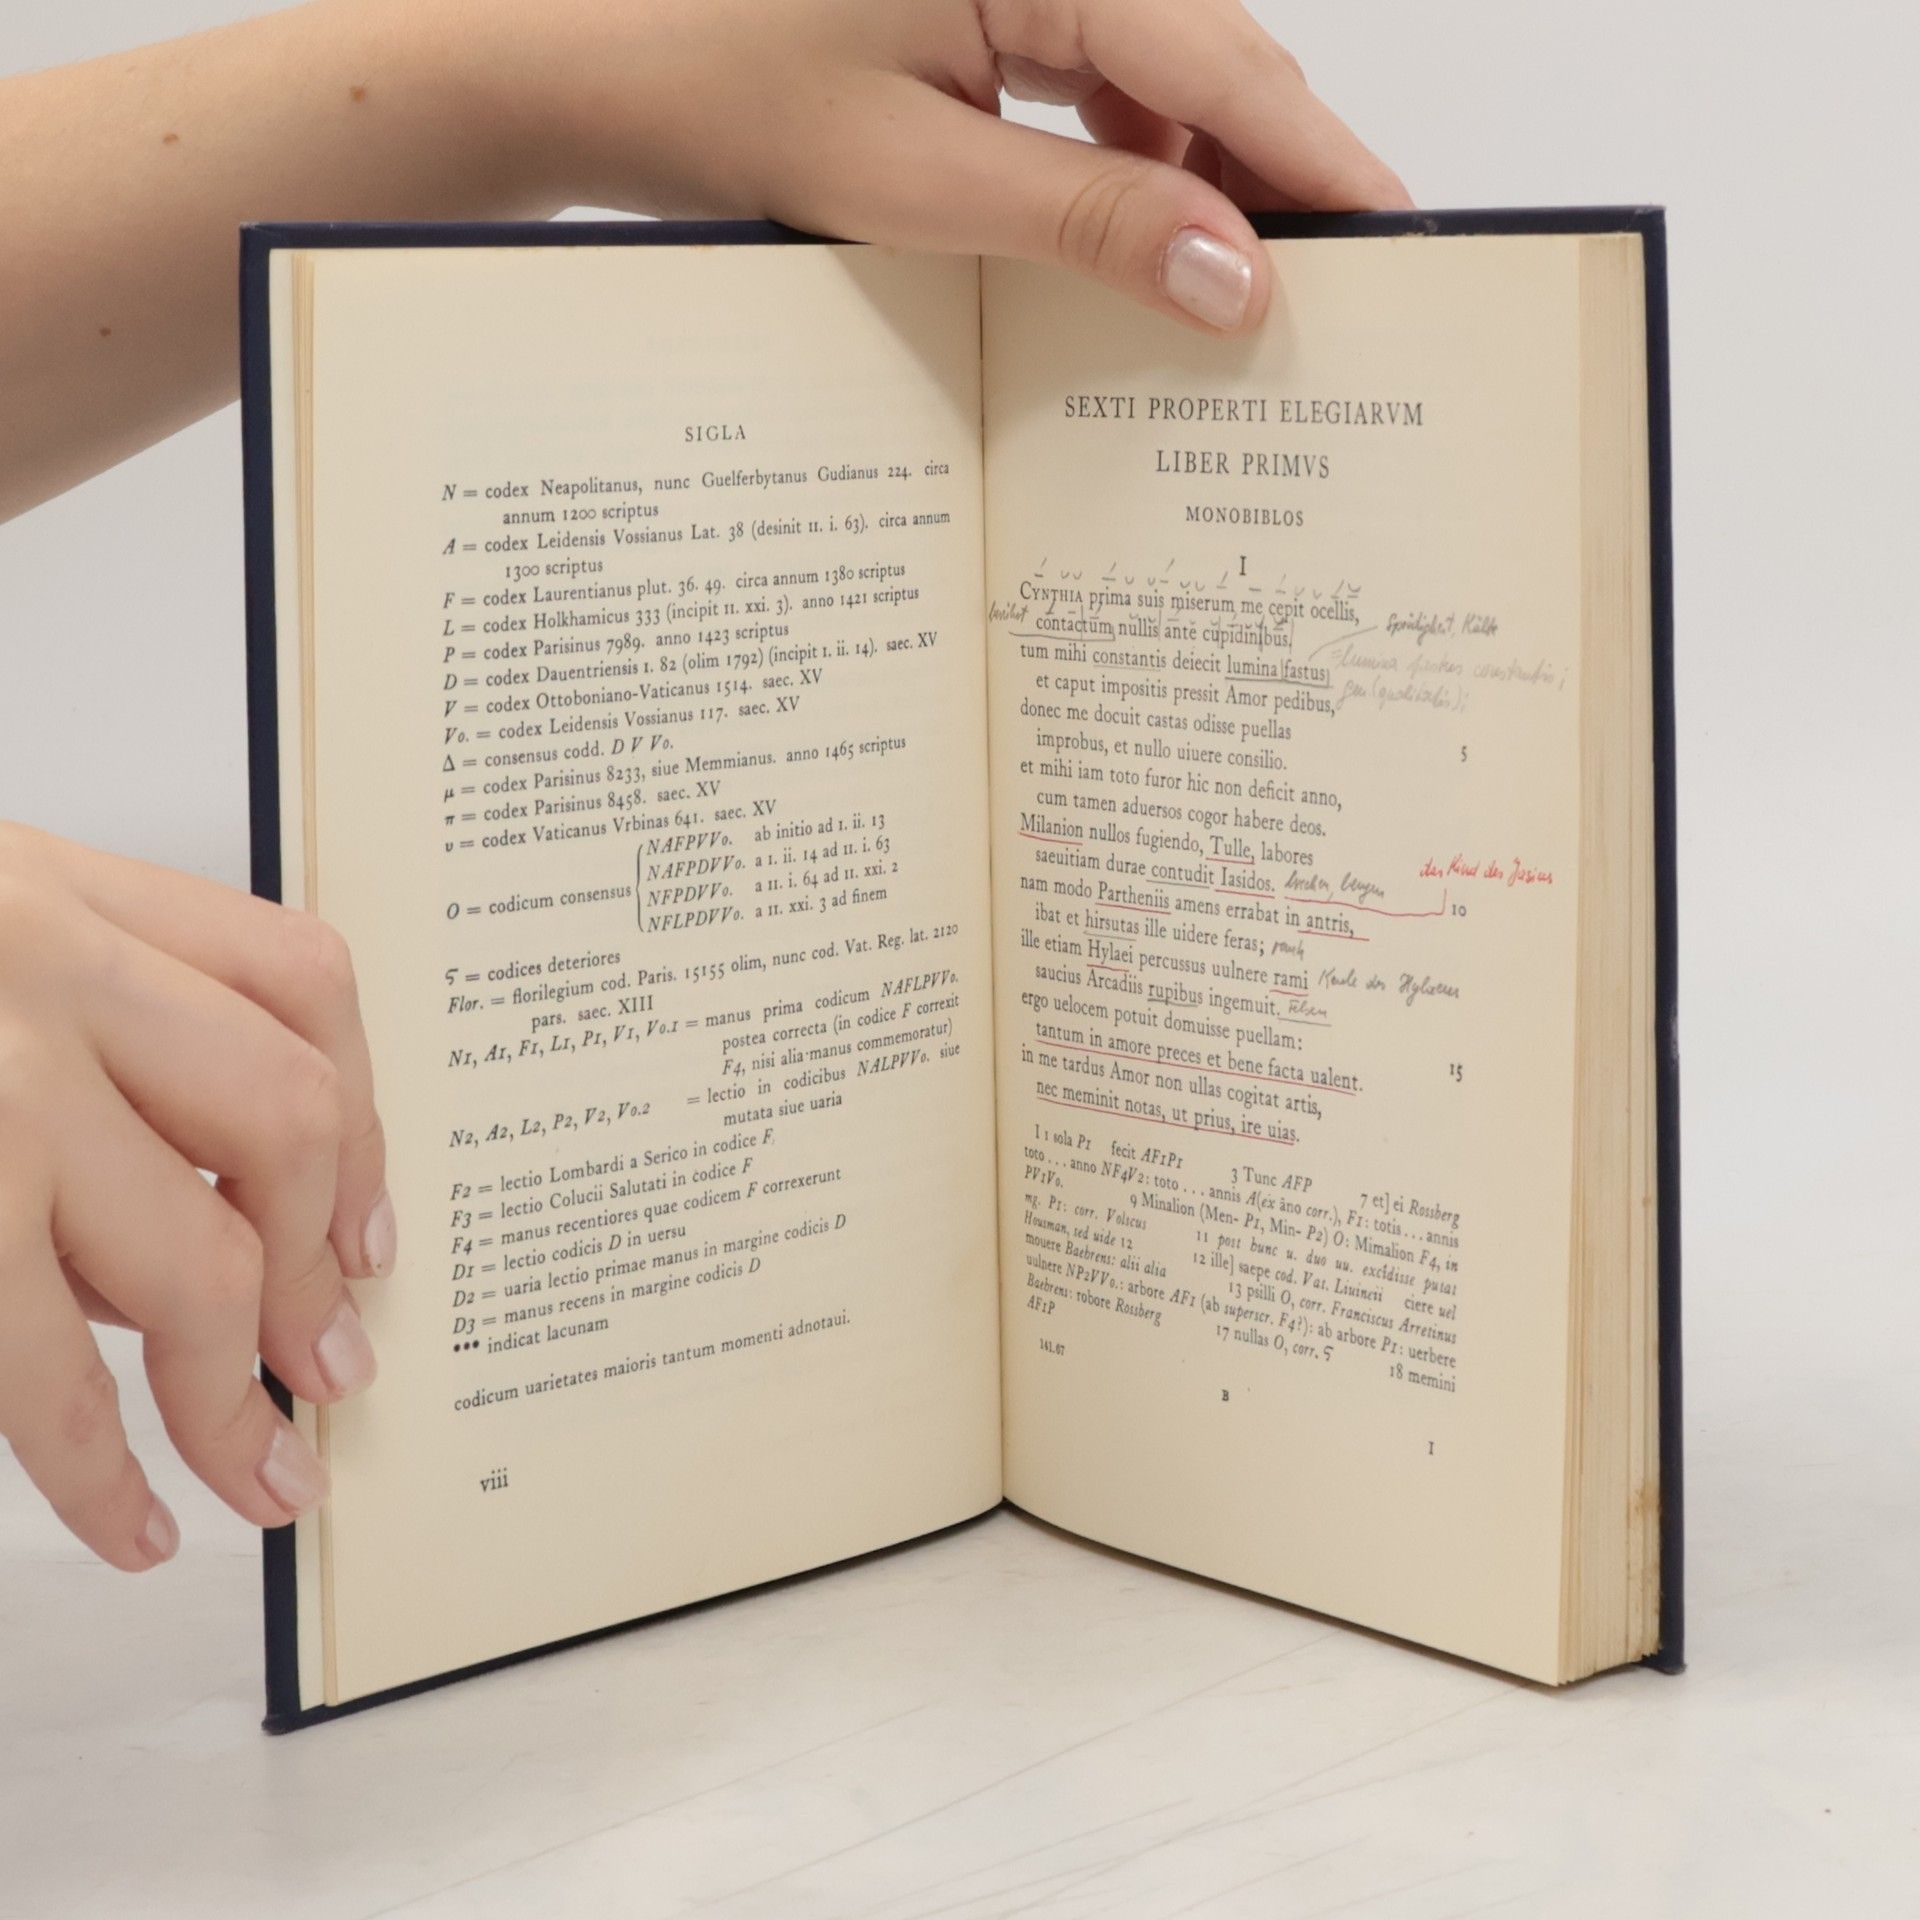 SIGLA
N = codex Neapolitanus, nunc Guelferbytanus Gudianus 224. circa
annum 1200 scriptus
A = codex Leidensis Vossianus Lat. 38 (desinit II. i. 63). circa annum
1300 scriptus
F = codex Laurentianus plut. 36. 49. circa annum 1380 scriptus
L = codex Holkhamicus 333 (incipit II. xxi. 3). anno 1421 scriptus
P = codex Parisinus 7989. anno 1423 scriptus
D = codex Dauentriensis 1. 82 (olim 1792) (incipit I. ii. 14). saec. XV
V = codex Ottoboniano-Vaticanus 1514. saec. XV
Vo. = codex Leidensis Vossianus 117. saec. XV
Δ = consensus codd. D V Vo.
μ = codex Parisinus 8233, siue Memmianus. anno 1465 scriptus
π = codex Parisinus 8458. saec. XV
υ = codex Vaticanus Vrbinas 641. saec. XV
O = codicum consensus
NAFPVVo. ab initio ad I. ii. 13
NAFPDVVo. a I. ii. 14 ad II. i. 63
NFPDVVo. a II. i. 64 ad II. xxi. 2
NFLPDVVo. a II. xxi. 3 ad finem
ς = codices deteriores
Flor. = florilegium cod. Paris. 15155 olim, nunc cod. Vat. Reg. lat. 2120
pars. saec. XIII
N1, A1, F1, L1, P1, V1, Vo.1 = manus prima codicum NAFLPVVo.
postea correcta (in codice F correxit
F4, nisi alia manus commemoratur)
N2, A2, L2, P2, V2, Vo.2 = lectio in codicibus NALPVVo. siue
mutata siue uaria
F2 = lectio Lombardi a Serico in codice F
F3 = lectio Colucii Salutati in codice F
F4 = manus recentiores quae codicem F correxerunt
D1 = lectio codicis D in uersu
D2 = uaria lectio primae manus in margine codicis D
D3 = manus recens in margine codicis D
••• indicat lacunam
codicum uarietates maioris tantum momenti adnotaui.
viii
SEXTI PROPERTI ELEGIARVM
LIBER PRIMVS
MONOBIBLOS
I
CYNTHIA prima suis miserum me cepit ocellis,
contactum nullis ante cupidinibus. Sprödigkeit, Kälte
tum mihi constantis deiecit lumina fastus = lumina fastus constantis;
et caput impositis pressit Amor pedibus, gen. (qualitatis);
donec me docuit castas odisse puellas 5
improbus, et nullo uiuere consilio.
et mihi iam toto furor hic non deficit anno,
cum tamen aduersos cogor habere deos.
Milanion nullos fugiendo, Tulle, labores
saeuitiam durae contudit Iasidos. brechen, beugen das Kind des Jasius 10
nam modo Partheniis amens errabat in antris,
ibat et hirsutas ille uidere feras; rauh
ille etiam Hylaei percussus uulnere rami Keule des Hylaeus
saucius Arcadiis rupibus ingemuit. Felsen
ergo uelocem potuit domuisse puellam: 15
tantum in amore preces et bene facta ualent.
in me tardus Amor non ullas cogitat artis,
nec meminit notas, ut prius, ire uias.
I 1 sola P1 fecit AF1P1 3 Tunc AFP 7 et] ei Rossberg
toto . . . anno NF4V2: toto . . . annis A(ex āno corr.), F1: totis . . . annis
PV1Vo. 9 Minalion (Men- P1, Min- P2) O: Mimalion F4, in
mg. P1: corr. Volscus 11 post hunc u. duo uu. excidisse putat
Housman, sed uide 12 12 ille] saepe cod. Vat. Liuineii ciere uel
mouere Baehrens: alii alia 13 psilli O, corr. Franciscus Arretinus
uulnere NP2VVo.: arbore AF1 (ab superscr. F4?): ab arbore P1: uerbere
Baehrens: robore Rossberg 17 nullas O, corr. ς 18 memini
AF1P
141.67
B
1